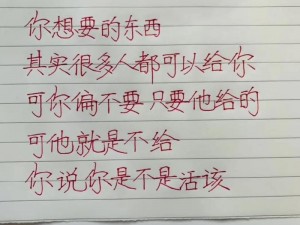 你想要的东西
其实很多人都可以给你
可你偏不要 只要他给的
可他就是不给
你说你是不是活该